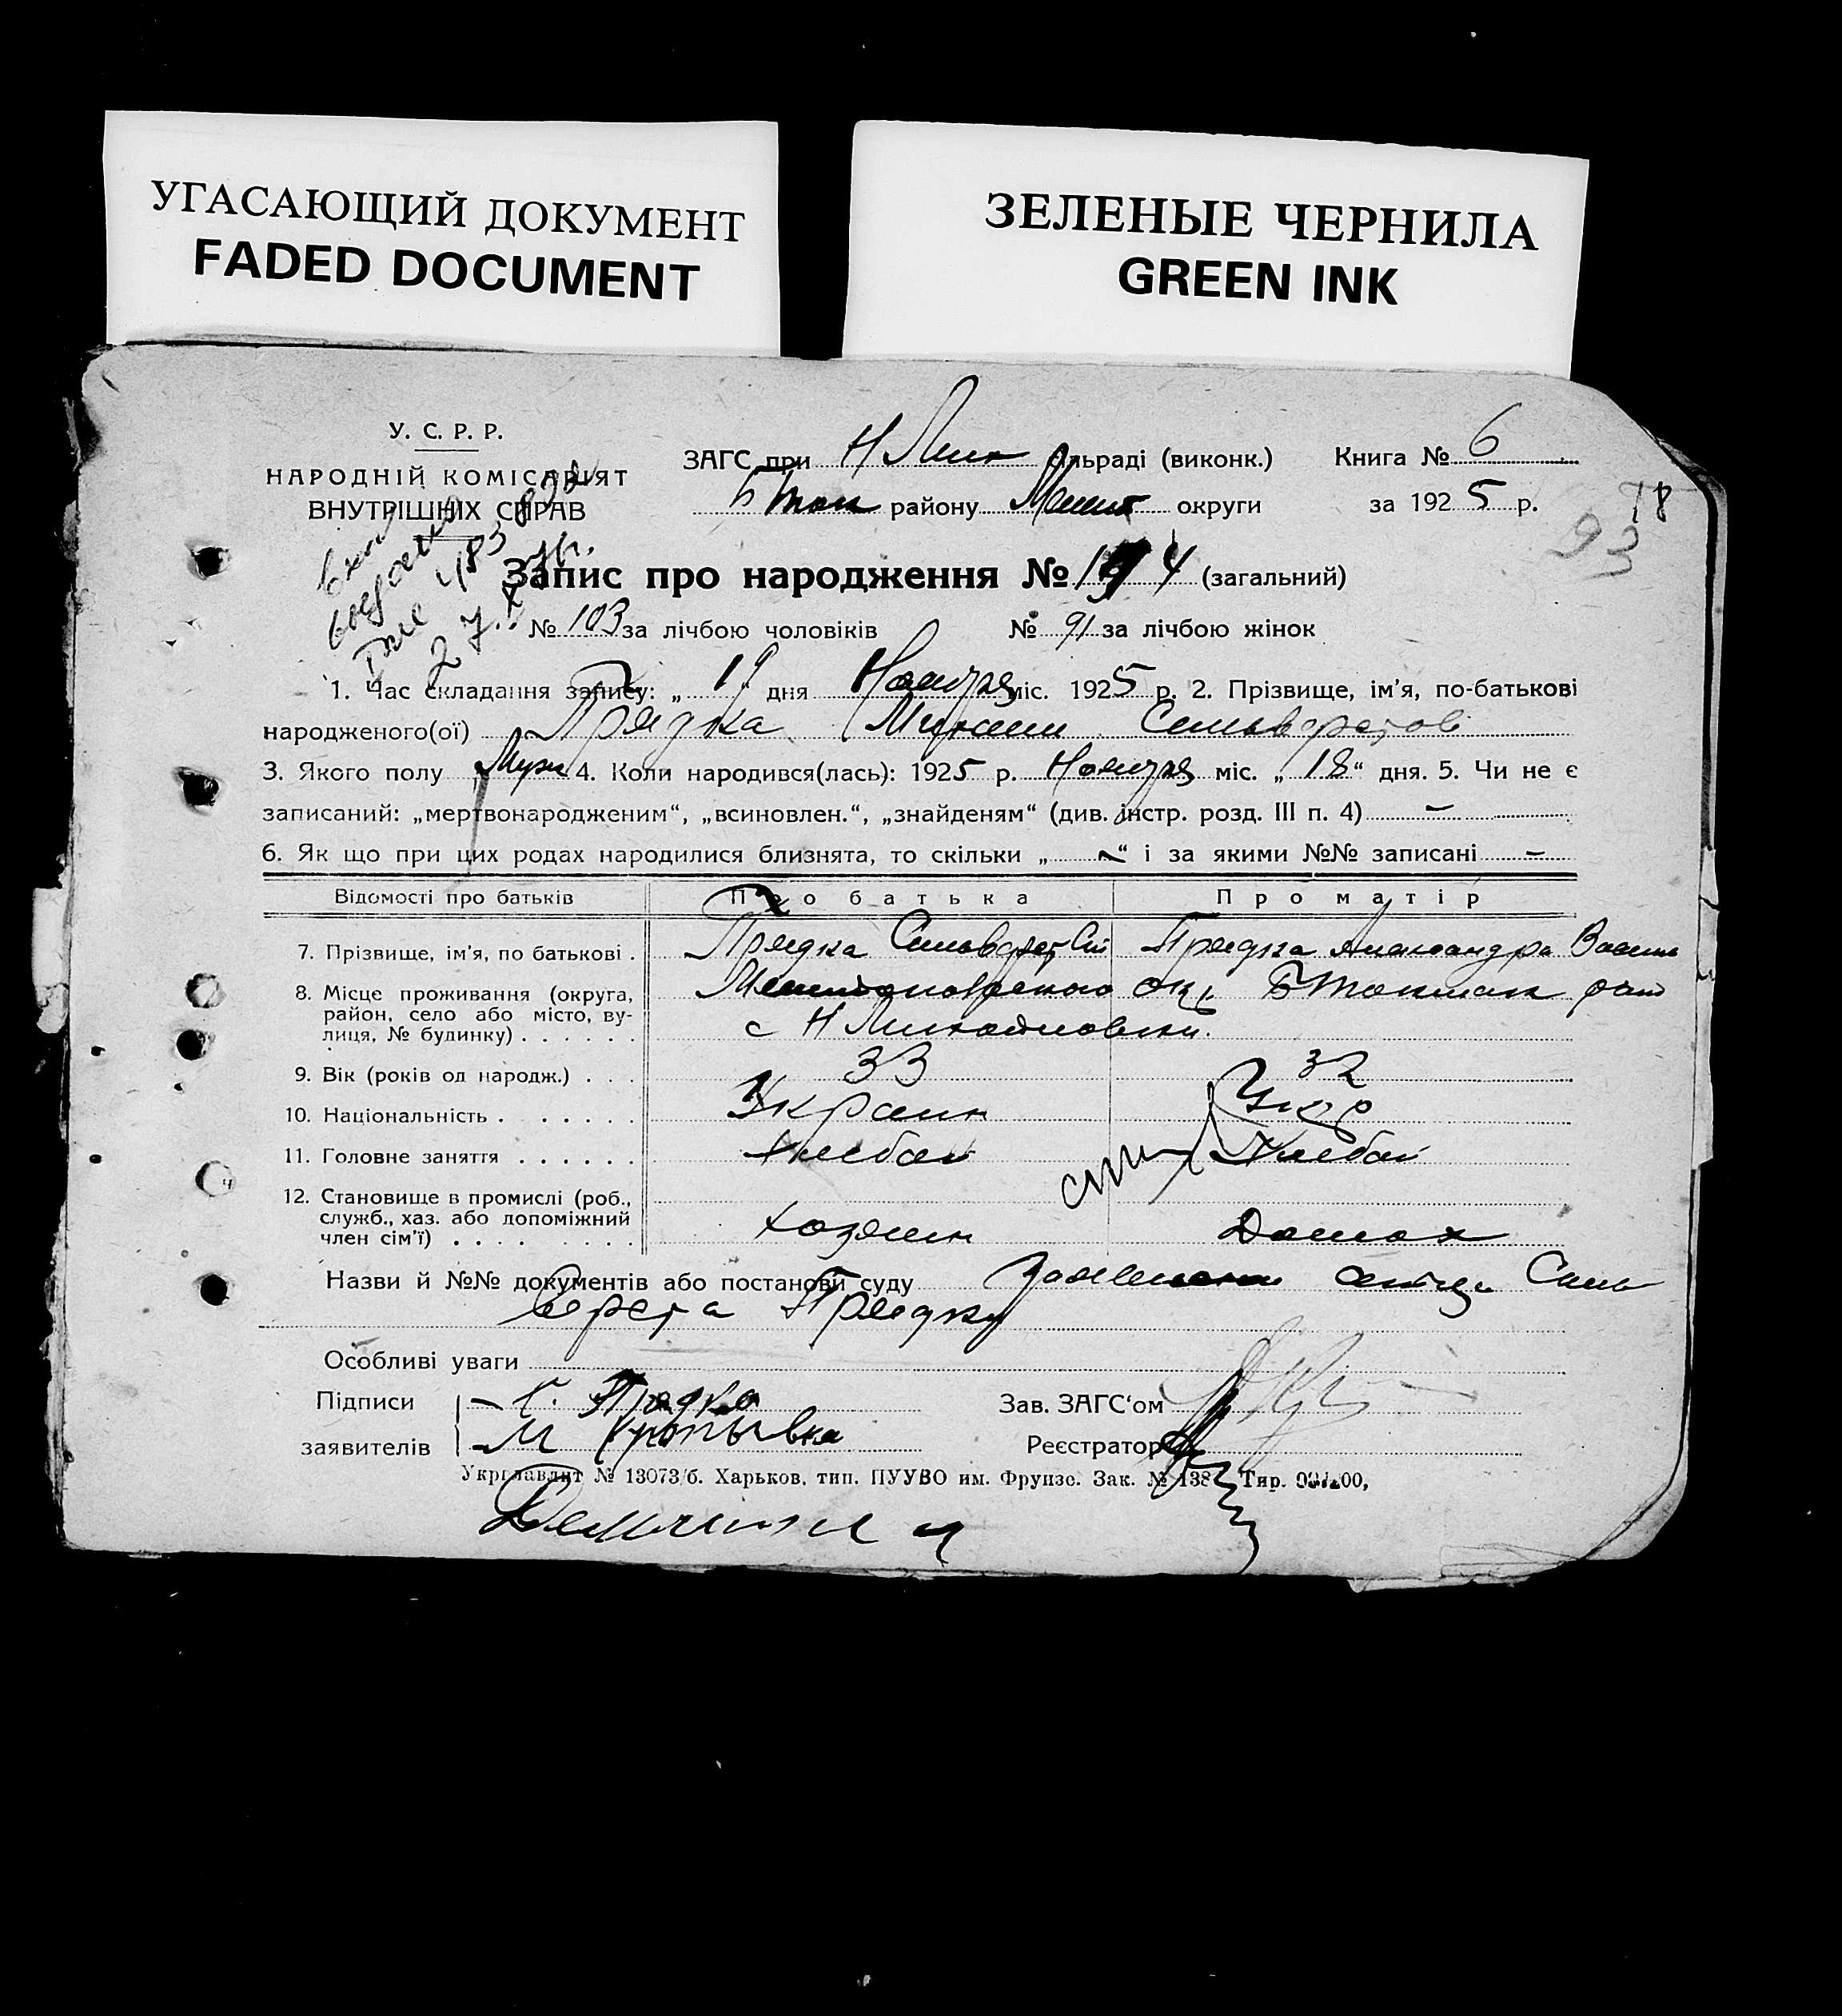 УГАСАЮЩИЙ ДОКУМЕНТ
FADED DOCUMENT
ЗЕЛЕНЫЕ ЧЕРНИЛА
GREEN INK
У. С. Р. Р.
НАРОДНІЙ КОМІСАРІЯТ
ВНУТРІШНІХ СПРАВ
ЗАГС при Н Мих сільраді (виконк.) Книга № 6
Б Ток району Мелит округи за 1925 р.
78
93
Запис про народження № 194 (загальний)
№ 103 за лічбою чоловіків № 91 за лічбою жінок
1. Час складання запису: „ 19 дня Ноября міс. 1925 р. 2. Прізвище, ім'я, по-батькові
народженого(ої) Прядка
3. Якого полу Муж 4. Коли народився(лась): 1925 р. Ноября міс. „ 18 “ дня. 5. Чи не є
записаний: „мертвонародженим“, „всиновлен.“, „знайденям“ (див. інстр. розд. III п. 4) –
6. Як що при цих родах народилися близнята, то скільки „ – “ і за якими №№ записані –
Відомості про батьків Про батька Про матір
7. Прізвище, ім'я, по батькові . Прядка Прядка Александра Василь
8. Місце проживання (округа, Мелитопольского окр. Б Токмак рай
район, село або місто, ву-
лиця, № будинку) . . . . . . с Н
9. Вік (років од народж.) . . . 33 32
10. Національність . . . . . . Украин Укр
11. Головне заняття . . . . . . Хлебоп Хлебоп
12. Становище в промислі (роб.,
служб., хаз. або допоміжний
член сім'ї) . . . . . . . . хозяин Домох
Назви й №№ документів або постанови суду отца Силь
верста Прядки
Особливі уваги
Підписи С. Прядка Зав. ЗАГС'ом
заявителів М Реєстратор
Укрглавлит № 13073/б. Харьков, тип. ПУУВО им. Фрунзе. Зак. № 138 Тир.